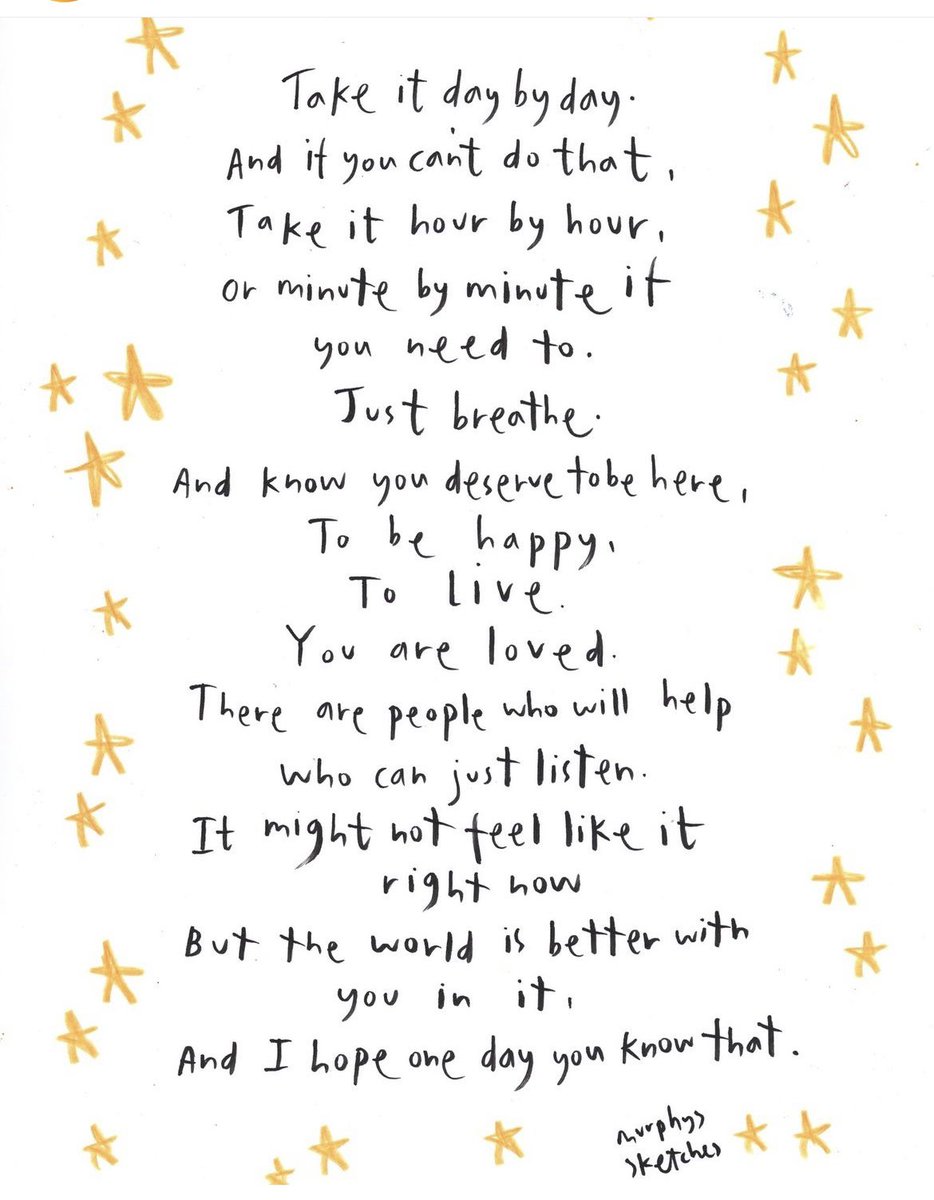 Take it day by day.
And if you can't do that,
Take it hour by hour,
or minute by minute if
you need to.
Just breathe.
And know you deserve to be here,
To be happy,
To live.
You are loved.
There are people who will help
who can just listen.
It might not feel like it
right now
But the world is better with
you in it,
And I hope one day you know that.
murphys
sketches